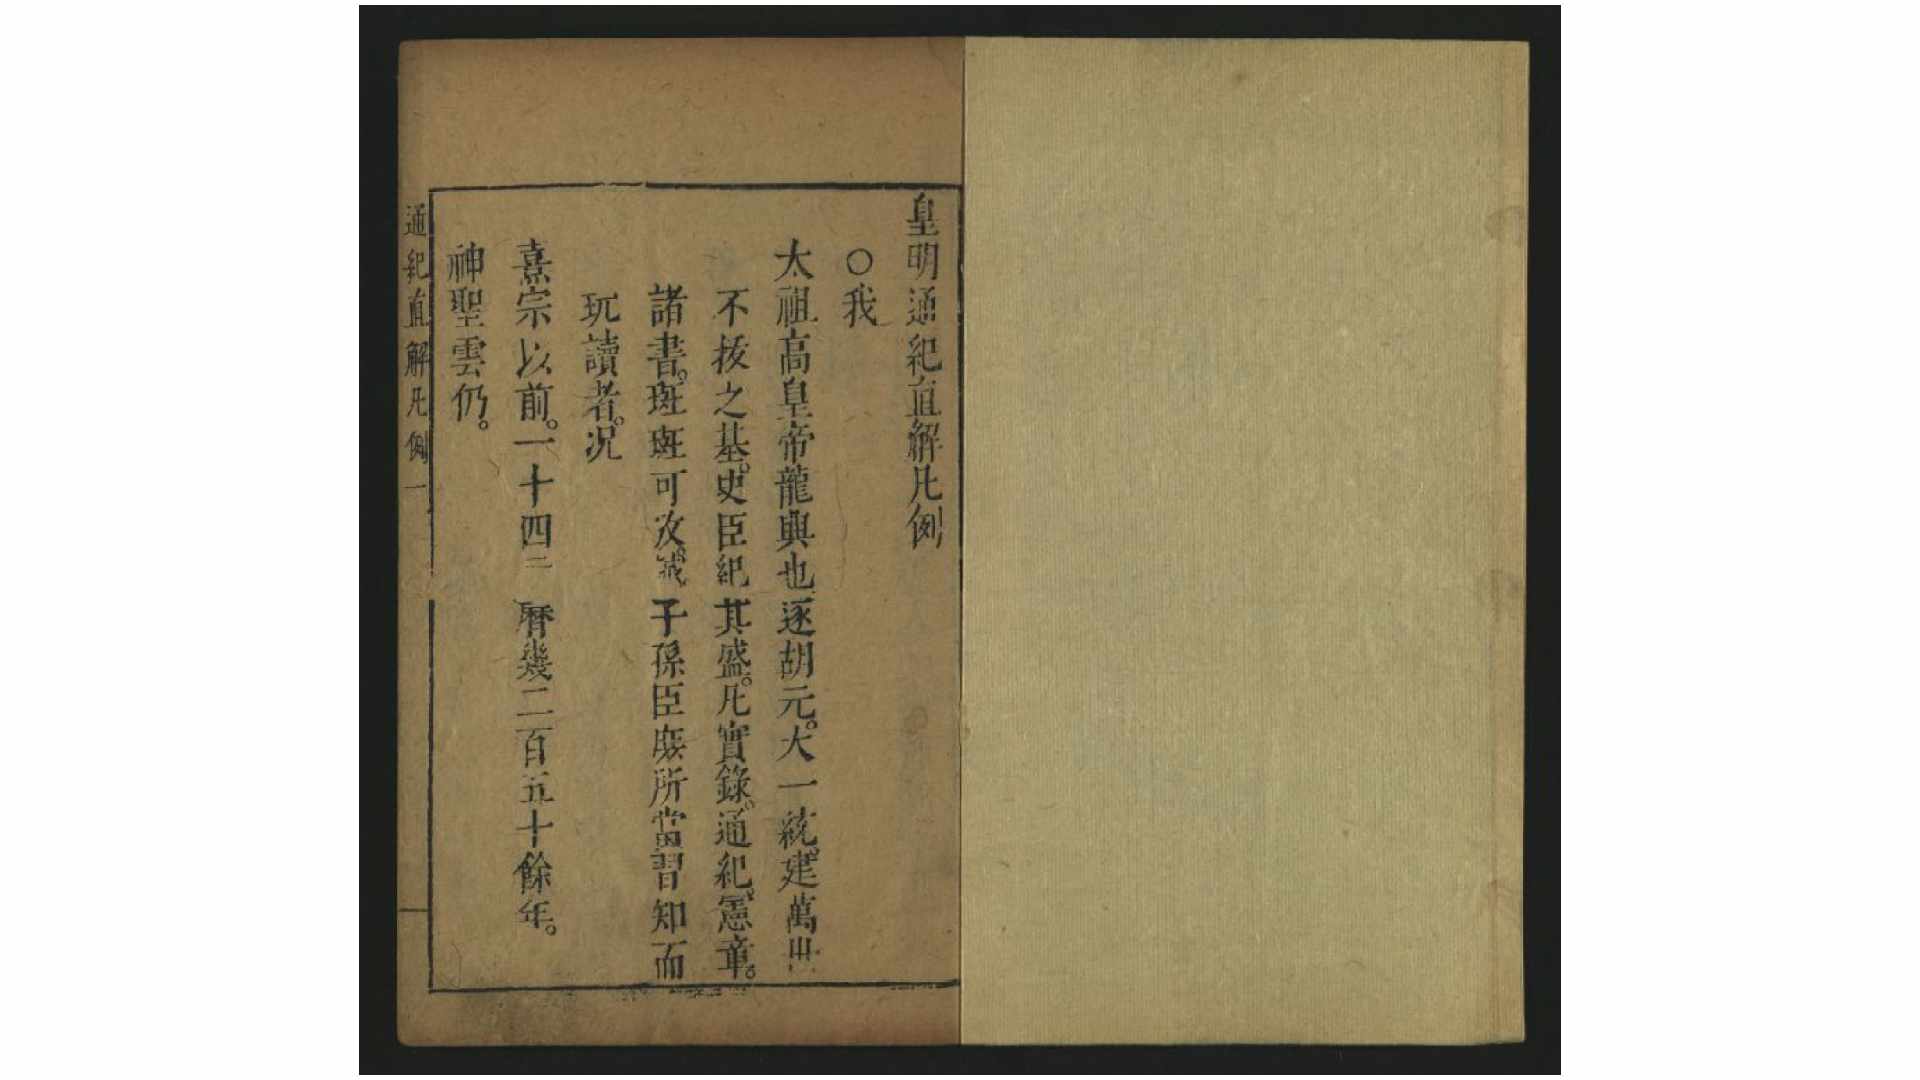 皇明通紀直解凡例
○我
太祖高皇帝龍興也逐胡元。大一統。建萬世
不拔之基。史臣紀其盛。凡實錄。通紀。憲章。
諸書。斑斑可攷。誠子孫臣庶所當習知而
玩讀者。况
熹宗以前。一十四 曆幾二百五十餘年。
神聖雲仍。
通紀直解凡例 一